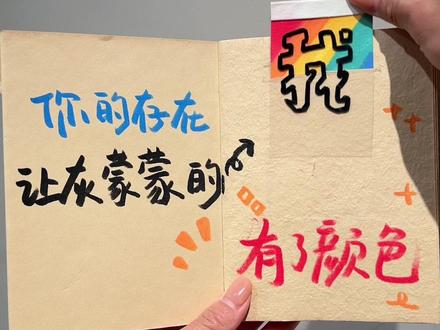 你的存在
让灰蒙蒙的
我
有了颜色